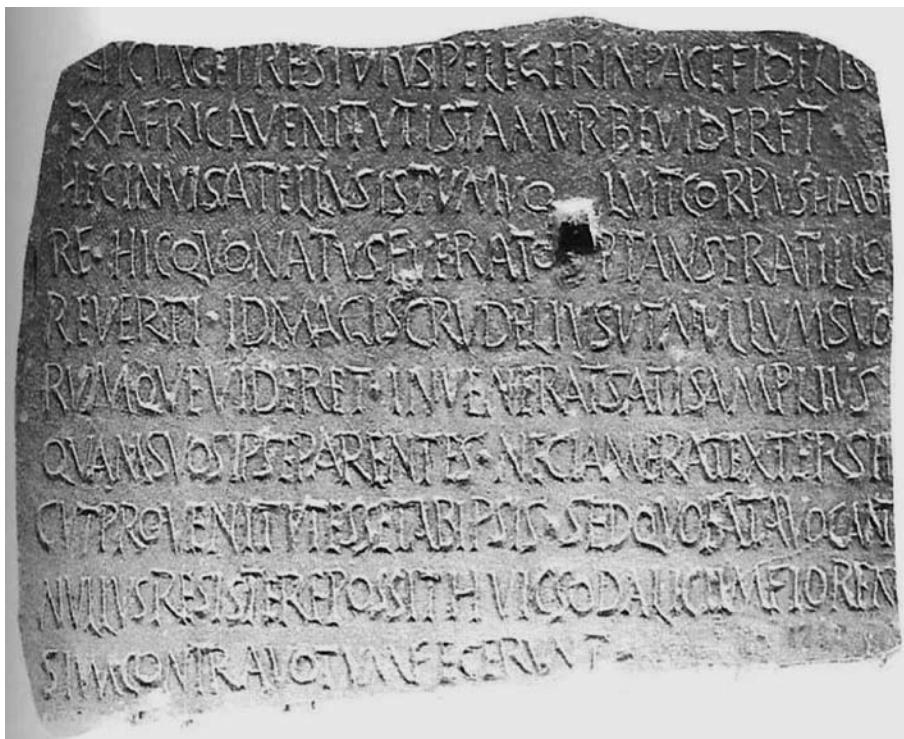 HIC IACET RESTVTVS PELEGER IN PACE FIDELIS
EX AFRICA VENIT VT ISTAM VRBE VIDERET
HEC INVISA TELLVS ISTVM VO LVIT CORPVS HABE
RE · HIC QVO NATVS FVERAT O PTANS ERAT ILLO
REVERTI · ID MAGIS CRVDELIVS VT NVLLVM SVO
RVMQVE VIDERET · INVENERAT SATIS AMPLIVS
QVAM SVOS IPSE PARENTES · NEC IAM ERAT EXTER SI
CVT PROVENIT VT ESSET AB IPSIS · SED QVO FATA VOCANT
NVLLVS RESISTERE POSSIT HVIC SODALICIVM FLOREN
SIVM CONTRA VOTVM FECERVNT